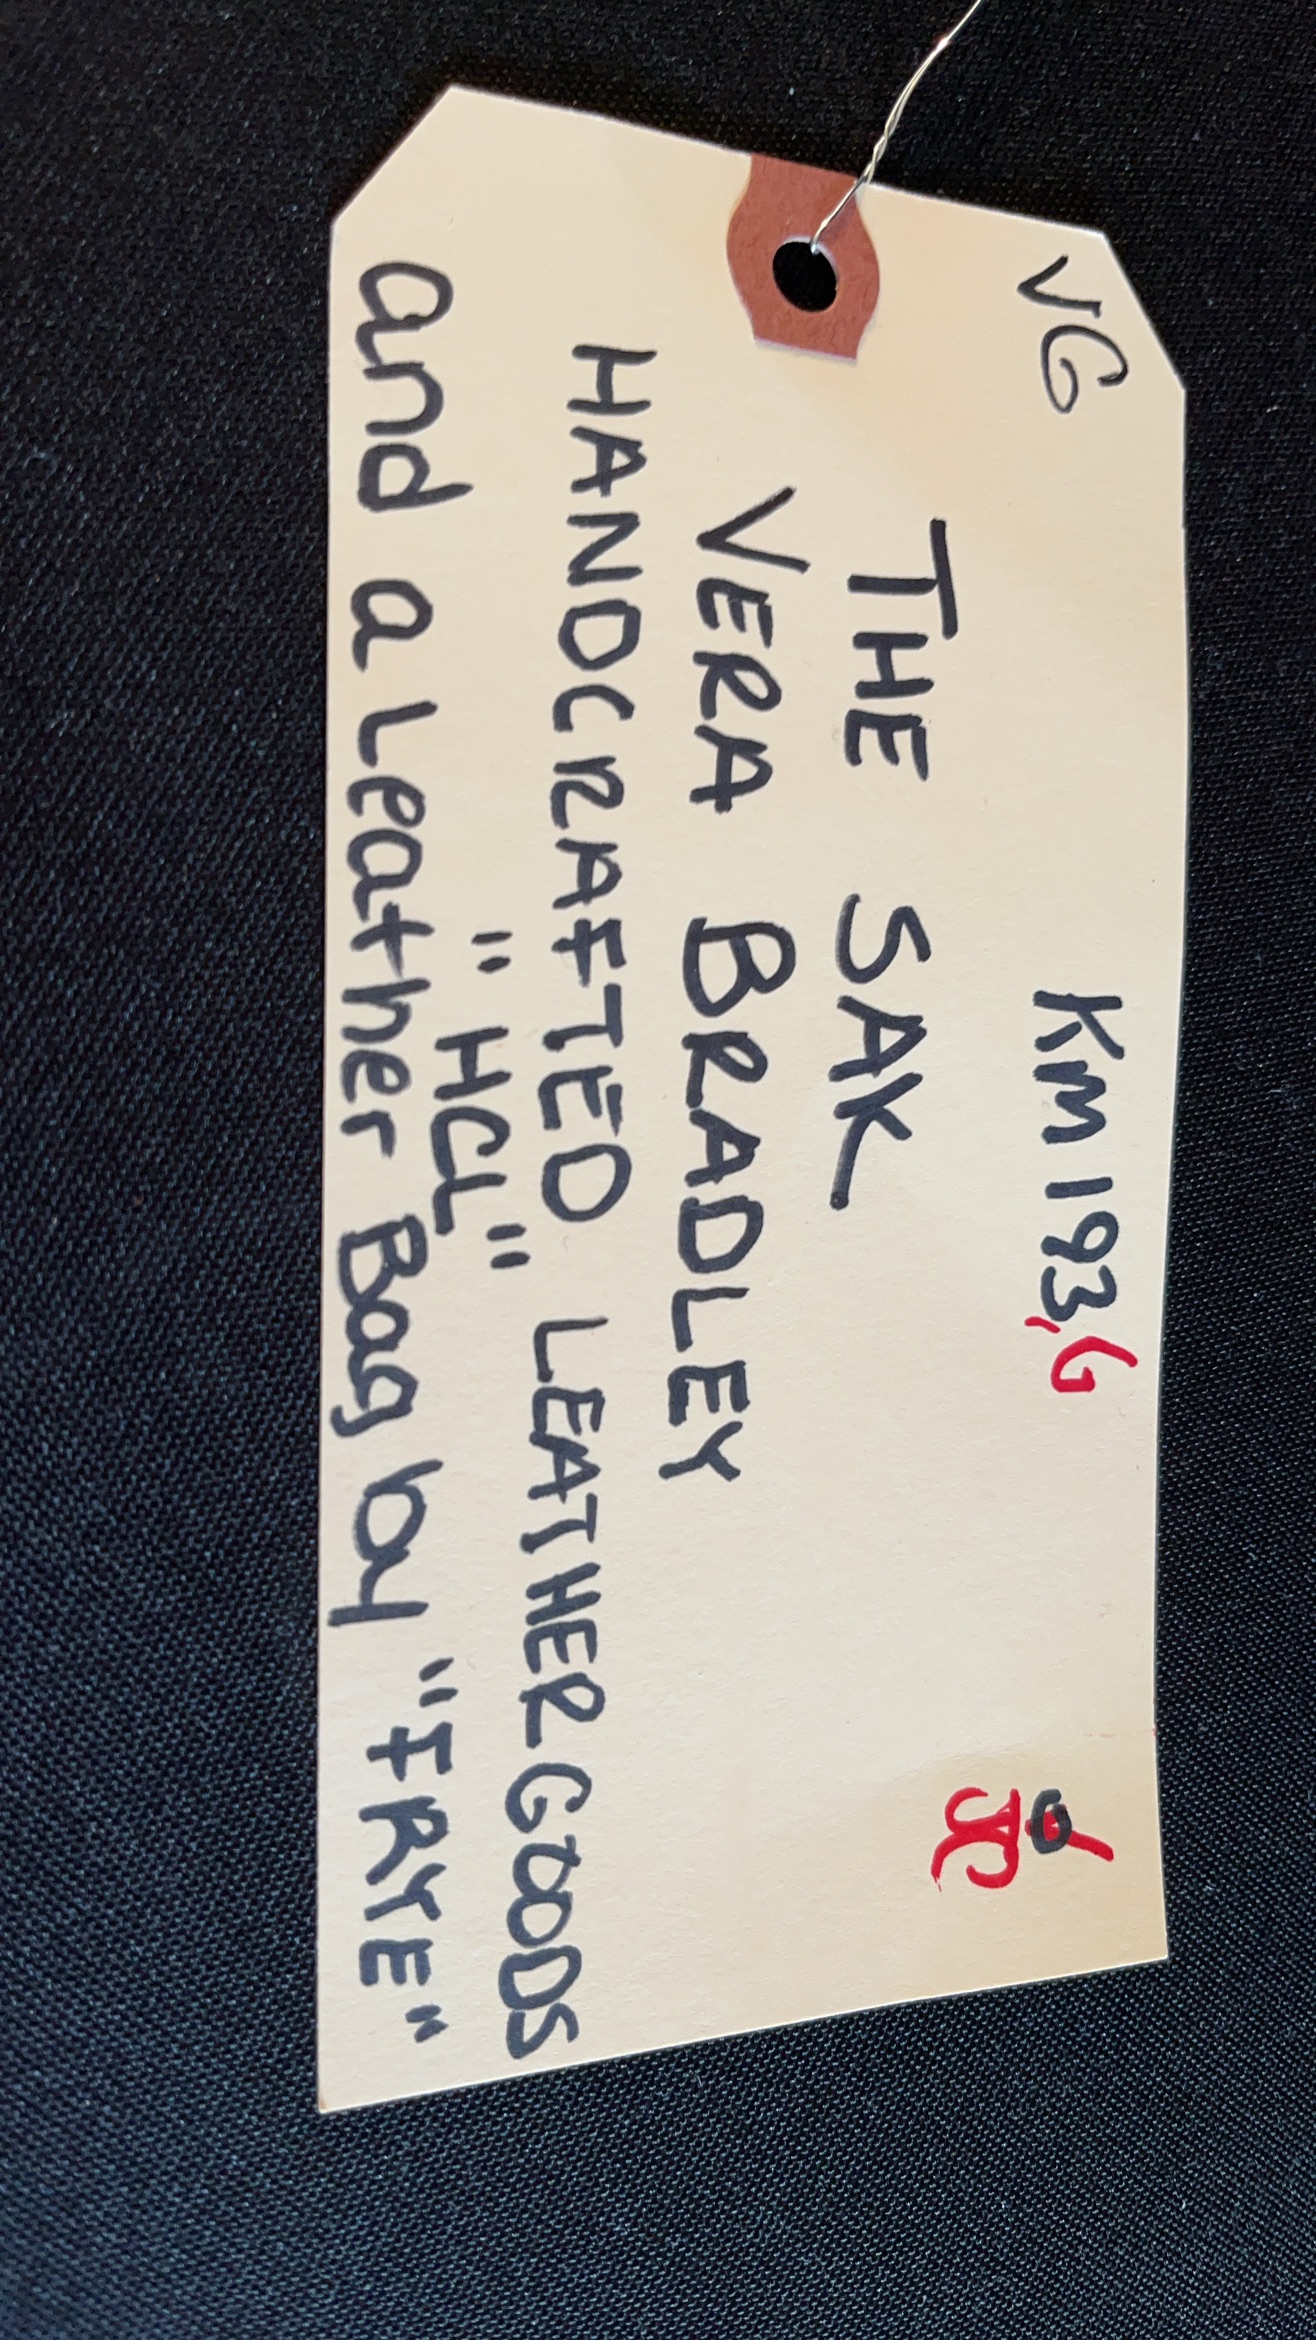 VG KM193,G
THE SAK
VERA BRADLEY
HANDCRAFTED LEATHER GOODS
"HCL"
and a Leather Bag by "FRYE"